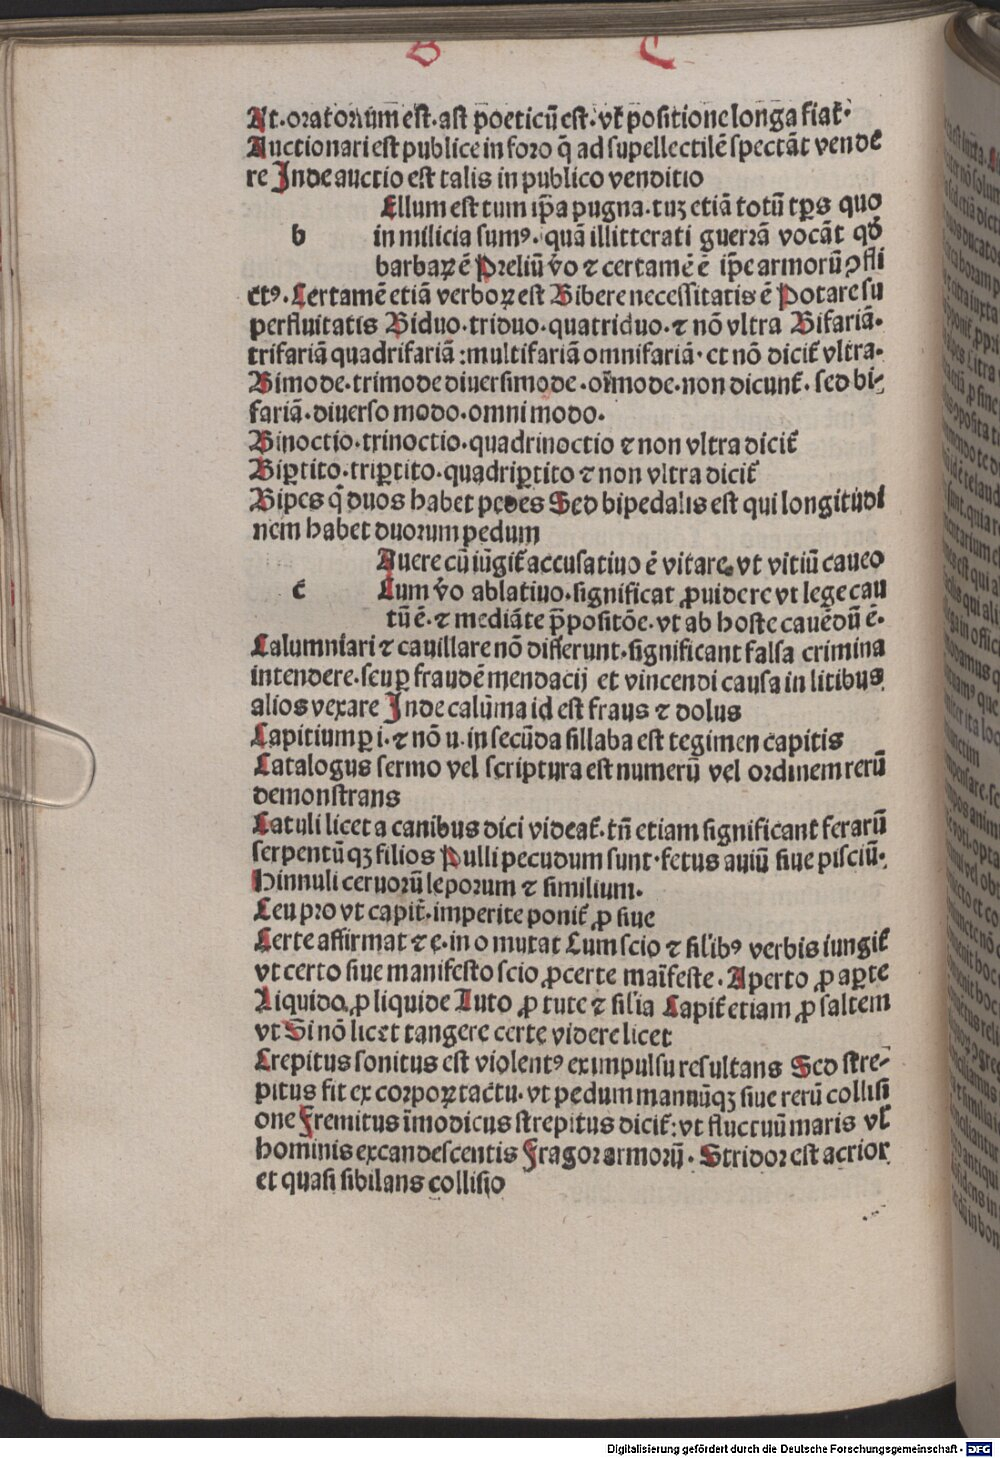 B C
At·oratorium est·ast poeticū est·vt̄ positione longa fiat̄·
Auctionari est publice in foro q̄ ad supellectilē spectāt vende
re Inde auctio est talis in publico venditio
Ellum est tum ip̄a pugna·tuꝫ etiā totū tꝑs quo
b in milicia sumꝰ·quā illitterati guerrā vocāt qd̄
barbaꝝ ē Preliū v̄o ⁊ certamē ē ip̄e armorū ꝯfli
ctꝰ·Certamē etiā verboꝝ est Bibere necessitatis ē Potare su
perfluitatis Biduo·triduo·quatriduo·⁊ nō vltra Bifariā·
trifariā quadrifariā:multifariā omnifariā·et nō dicit̄ vltra·
Bimode·trimode diuersimode·oīmode·non dicunt̄·sed bi⸗
fariā·diuerso modo·omni modo·
Binoctio·trinoctio·quadrinoctio ⁊ non vltra dicit̄
Biꝑtito·triꝑtito·quadriꝑtito ⁊ non vltra dicit̄
Bipes q̄ duos habet pedes Sed bipedalis est qui longitudi
nem habet duorum pedum
Auere cū iūgit̄ accusatiuo ē vitare vt vitiū caueo
c Cum v̄o ablatiuo·significat ꝓuidere vt lege cau
tū ē·⁊ mediāte p̄positōe·vt ab hoste cauēdū ē·
Calumniari ⁊ cauillare nō differunt·significant falsa crimina
intendere·seu ꝑ fraudē mendacij et vincendi causa in litibus
alios vexare Inde calūma id est fraus ⁊ dolus
Capitium ꝑ i·⁊ nō u·in secūda sillaba est tegimen capitis
Catalogus sermo vel scriptura est numerū vel ordinem rerū
demonstrans
Catuli licet a canibus dici videat̄·tn̄ etiam significant ferarū
serpentūqꝫ filios Pulli pecudum sunt·fetus auiū siue pisciū·
Hinnuli ceruorū leporum ⁊ similium·
Ceu pro vt capit̄·imperite ponit̄ ꝓ siue
Certe affirmat ⁊ e·in o mutat Cum scio ⁊ sil̄ibꝰ verbis iungit̄
vt certo siue manifesto scio ꝓ certe maīfeste·Aperto ꝓ aꝑte
Liquido ꝓ liquide Tuto ꝓ tute ⁊ sil̄ia Capit̄ etiam ꝓ saltem
vt Si nō licet tangere certe videre licet
Crepitus sonitus est violentꝰ ex impulsu resultans Sed stre⸗
pitus fit ex corpoꝝ tactu·vt pedum manuūqꝫ siue rerū collisi
one Fremitus īmodicus strepitus dicit̄:vt fluctuū maris vl̄
hominis excandescentis Fragor armorū·Stridor est acrior
et quasi sibilans collisio
Digitalisierung gefördert durch die Deutsche Forschungsgemeinschaft - DFG